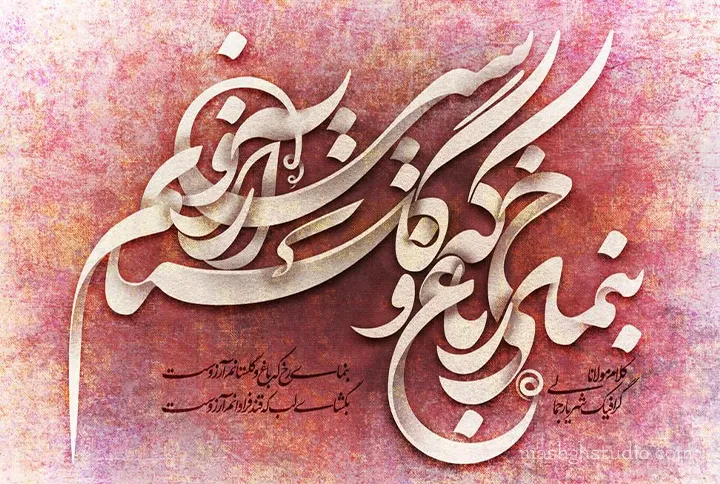 بنمای رخ که باغ و گلستانم آرزوست
بنمای رخ که باغ و گلستانم آرزوست
بگشای لب که قند فراوانم آرزوست
کلام مولانا
گرافیک شهریار جمالی
mashghstudio.com